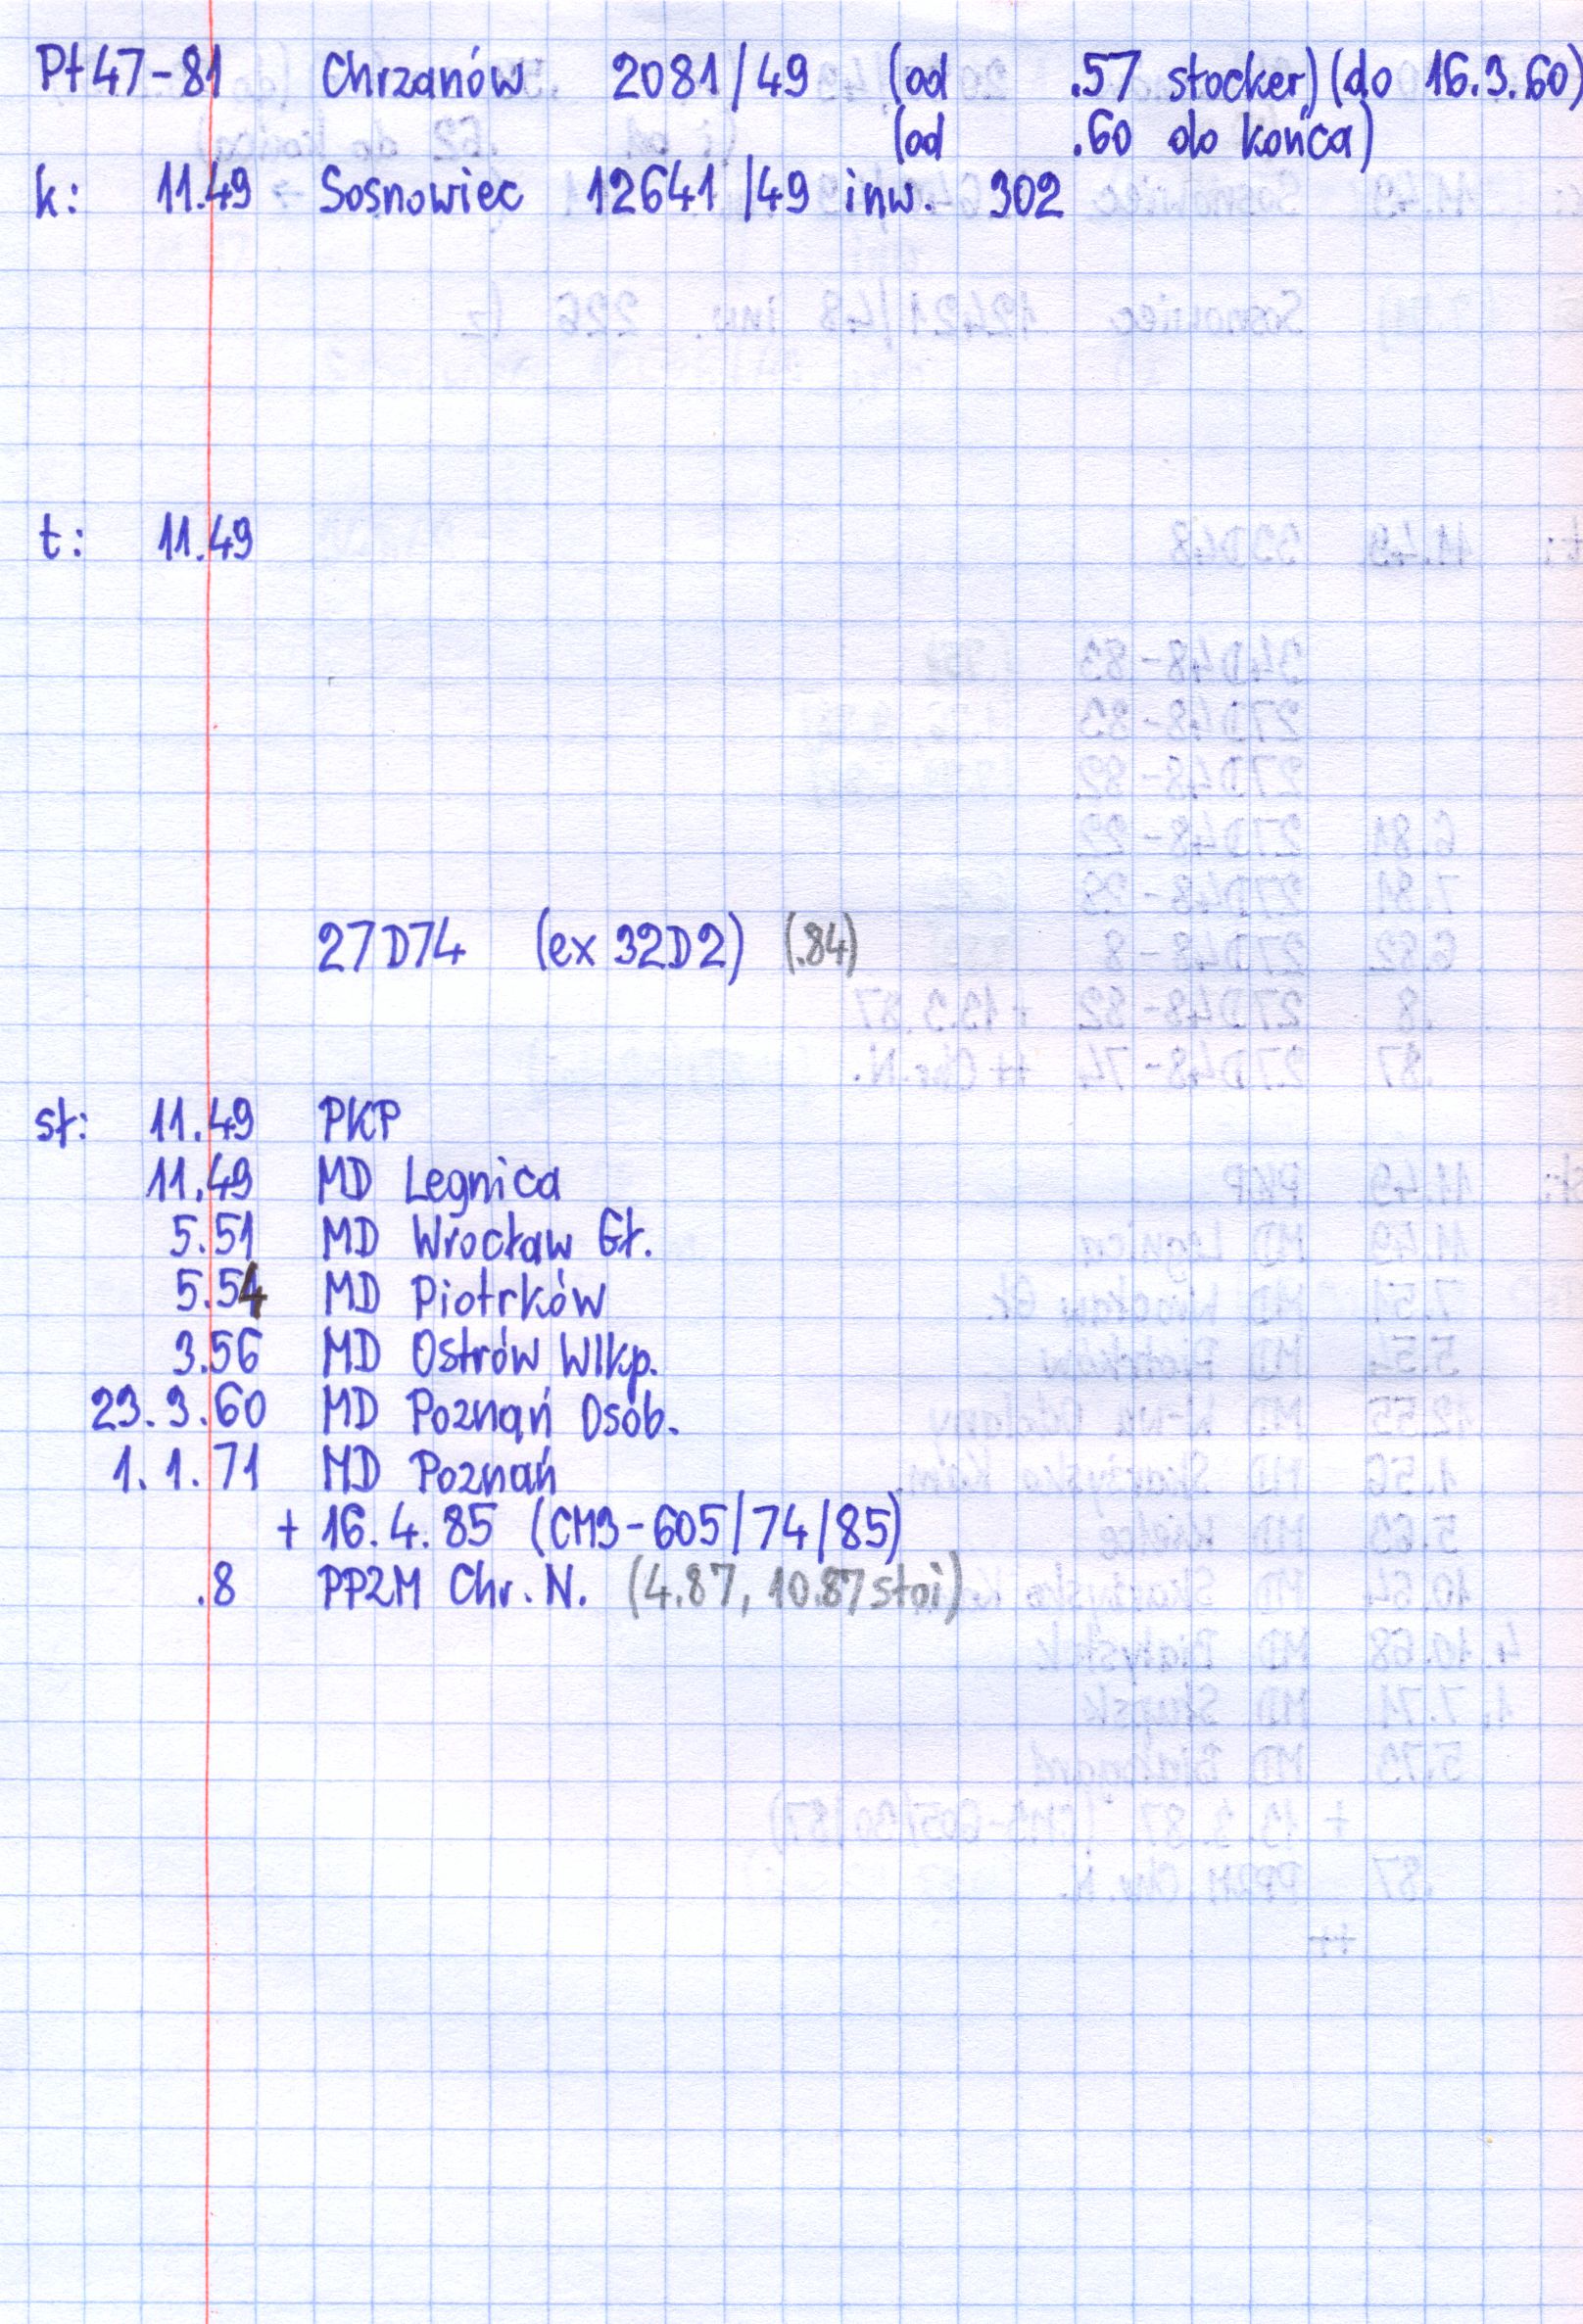 Pt47-81 Chrzanów 2081/49 (od .57 stocker) (do 16.3.60)
(od .60 do końca)
k: 11.49 Sosnowiec 12641/49 inw. 302
t: 11.49
27D74 (ex 32D2) (.84)
st: 11.49 PKP
11.49 MD Legnica
5.51 MD Wrocław Gł.
5.54 MD Piotrków
3.56 MD Ostrów Wlkp.
23.3.60 MD Poznań Osob.
1.1.71 MD Poznań
+ 16.4.85 (CM3-605/74/85)
.8 PP2M Chr. N. (4.87, 10.87 stoi)